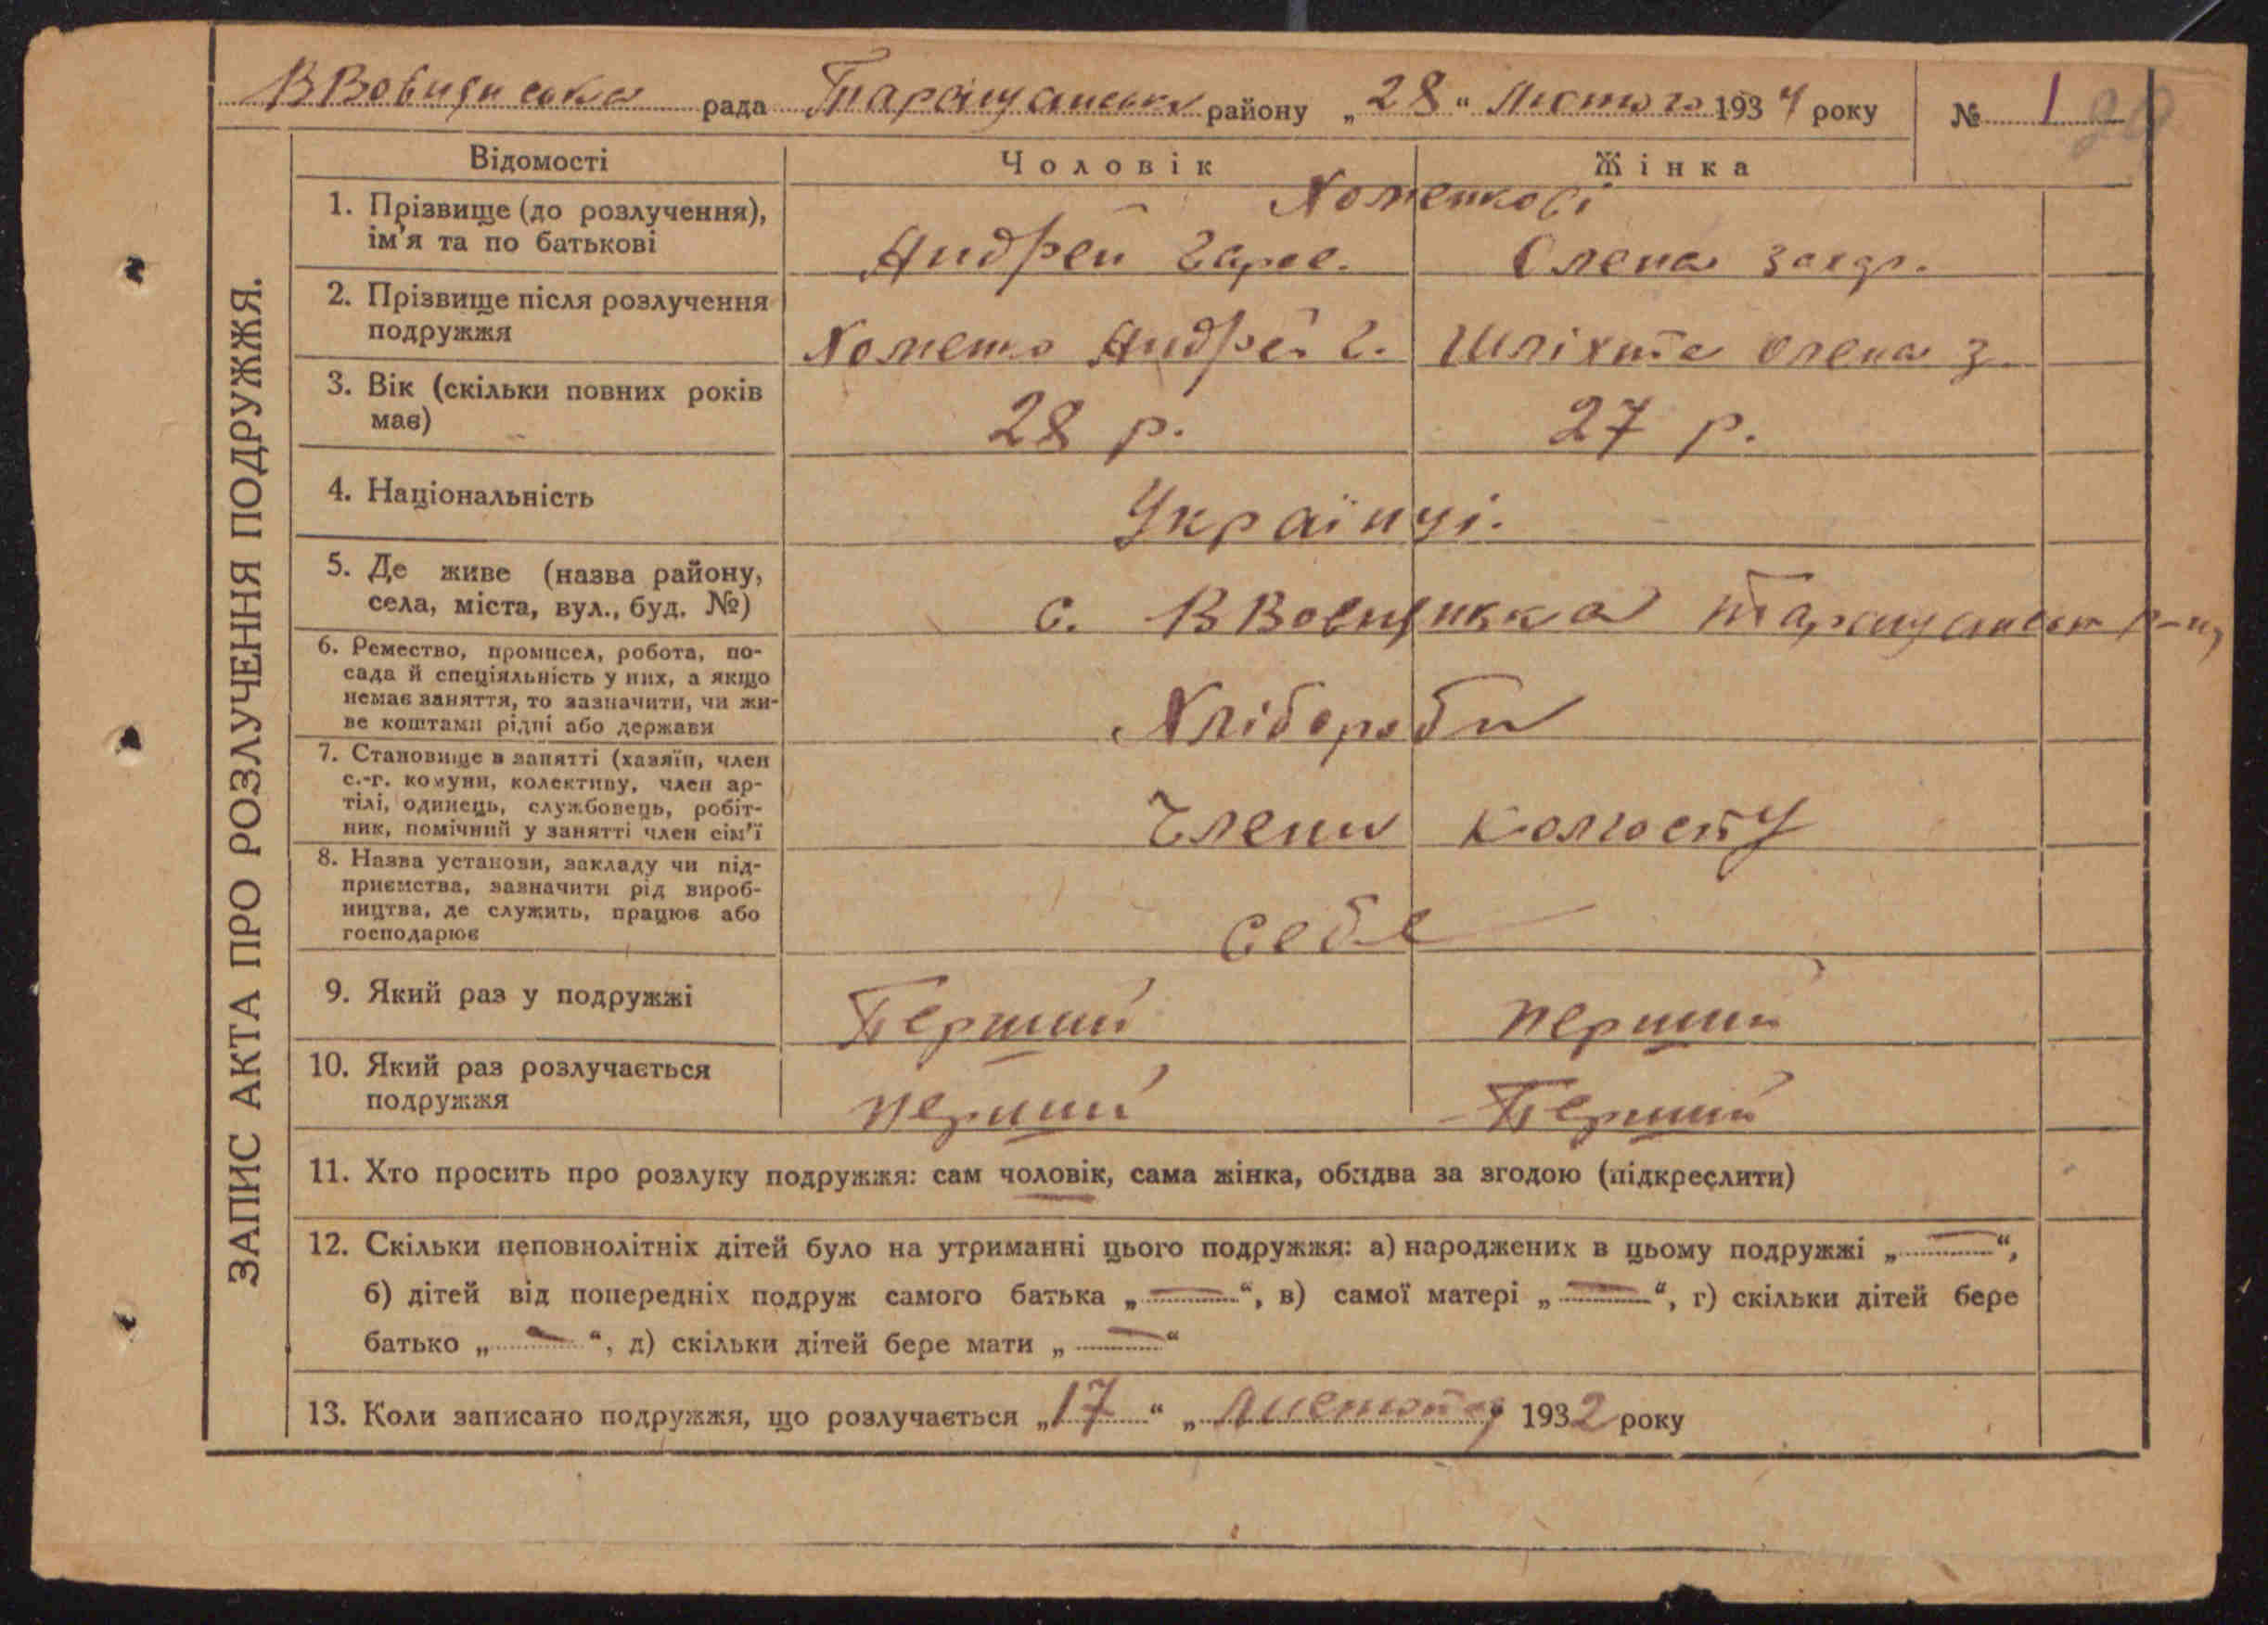 ВВовнянська рада Таращанськ району „28“ Лютого 1934 року № 1 20
ЗАПИС АКТА ПРО РОЗЛУЧЕННЯ ПОДРУЖЖЯ.
Відомості Чоловік Жінка
1. Прізвище (до розлучення),
ім'я та по батькові
Хоменкові
Андрей Олена Захар.
2. Прізвище після розлучення
подружжя
Хоменко Андрей Шліхта Олена З.
3. Вік (скільки повних років
має)
28 р. 27 р.
4. Національність
Українці.
5. Де живе (назва району,
села, міста, вул., буд. №)
с. Таращанськ р-ну
6. Ремество, промисел, робота, по-
сада й спеціяльність у них, а якщо
немає заняття, то зазначити, чи жи-
ве коштами рідні або держави
Хлібороби
7. Становище в занятті (хазяїн, член
с.-г. комуни, колективу, член ар-
тілі, одинець, службовець, робіт-
ник, помічний у занятті член сім'ї
Члени колгоспу
8. Назва установи, закладу чи під-
приємства, зазначити рід вироб-
ництва, де служить, працює або
господарює
себе
9. Який раз у подружжі
Перший перший
10. Який раз розлучається
подружжя
перший Перший
11. Хто просить про розлуку подружжя: сам чоловік, сама жінка, обидва за згодою (підкреслити)
12. Скільки неповнолітніх дітей було на утриманні цього подружжя: а) народжених в цьому подружжі „—“,
б) дітей від попередніх подруж самого батька „—“, в) самої матері „—“, г) скільки дітей бере
батько „—“, д) скільки дітей бере мати „—“
13. Коли записано подружжя, що розлучається „17“ „ 1932 року